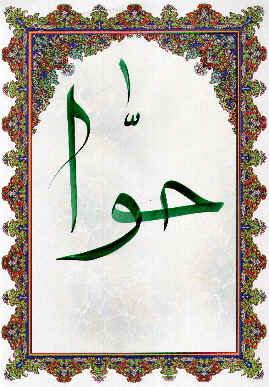 حوّا